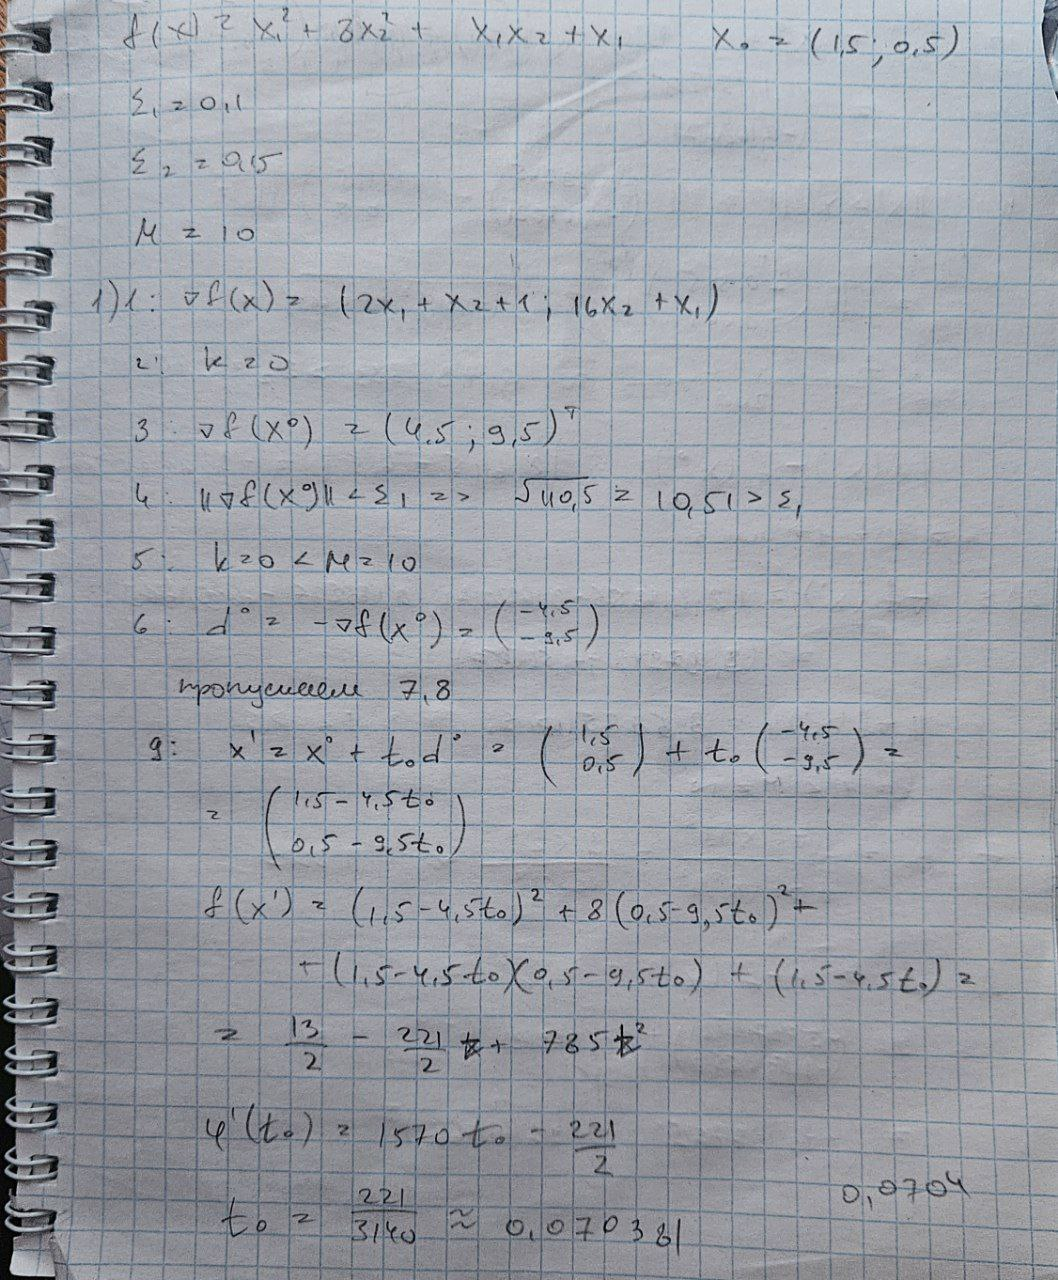 f(x) = x₁² + 8x₂² + x₁x₂ + x₁ x₀ = (1,5; 0,5)
Σ₁ = 0,1
Σ₂ = 0,15
M = 10
1) 1: ∇f(x) = (2x₁ + x₂ + 1; 16x₂ + x₁)
2: k = 0
3: ∇f(x⁰) = (4.5; 9,5)ᵀ
4: ||∇f(x⁰)|| < Σ₁ => √110,5 = 10,51 > Σ₁
5: k=0 < M=10
6: d⁰ = -∇f(x⁰) = (-4,5
-9,5)
пропускаем 7,8
9: x¹ = x⁰ + t₀d⁰ = (1,5
0,5) + t₀ (-4,5
-9,5) =
= (1,5 - 4,5t₀
0,5 - 9,5t₀)
f(x¹) = (1,5-4,5t₀)² + 8(0,5-9,5t₀)² +
+ (1,5-4,5t₀)(0,5-9,5t₀) + (1,5-4,5t₀) =
= 13/2 - 221/2 t + 785t²
φ'(t₀) = 1570t₀ - 221/2
0,0704
t₀ = 221/3140 ≈ 0,070381